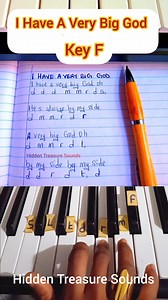 I Have A Very Big God
Key F
I HAVE A VERY BIG GOD
I have a very big God oh
d d d m m r d
It's always by my side
d d r m r d r
A very big God Oh
d d d m r d
Hidden Treasure Sounds
By my side by my side
d d r d t, d
F
Hidden Treasure Sounds